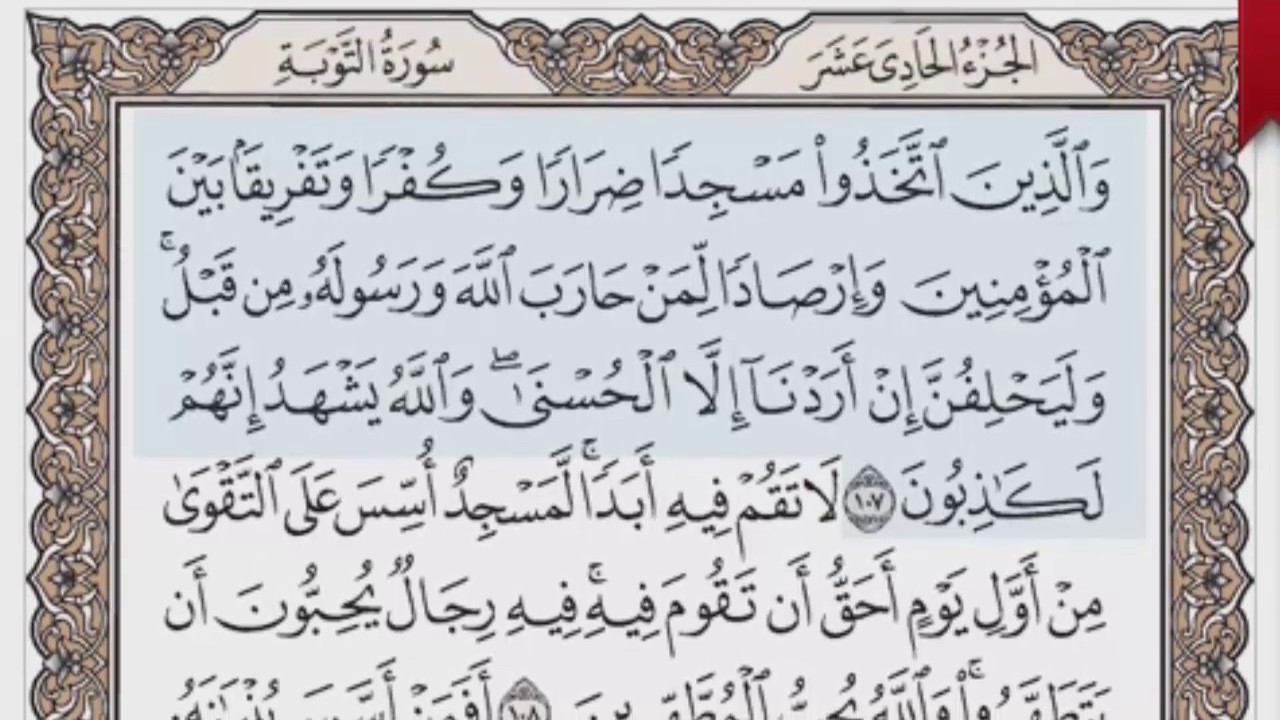 الجُزْءُ الحَادِىَ عَشَرَ
سُورَةُ التَّوْبَةِ
وَٱلَّذِينَ ٱتَّخَذُوا۟ مَسْجِدًا ضِرَارًا وَكُفْرًا وَتَفْرِيقًۢا بَيْنَ
ٱلْمُؤْمِنِينَ وَإِرْصَادًا لِّمَنْ حَارَبَ ٱللَّهَ وَرَسُولَهُۥ مِن قَبْلُ ۚ
وَلَيَحْلِفُنَّ إِنْ أَرَدْنَآ إِلَّا ٱلْحُسْنَىٰ ۖ وَٱللَّهُ يَشْهَدُ إِنَّهُمْ
لَكَـٰذِبُونَ ١٠٧ لَا تَقُمْ فِيهِ أَبَدًا ۚ لَّمَسْجِدٌ أُسِّسَ عَلَى ٱلتَّقْوَىٰ
مِنْ أَوَّلِ يَوْمٍ أَحَقُّ أَن تَقُومَ فِيهِ ۚ فِيهِ رِجَالٌ يُحِبُّونَ أَن
يَتَطَهَّرُوا۟ ۚ وَٱللَّهُ يُحِبُّ ٱلْمُطَّهِّرِينَ ١٠٨ أَفَمَنْ أَسَّسَ بُنْيَـٰنَهُۥ